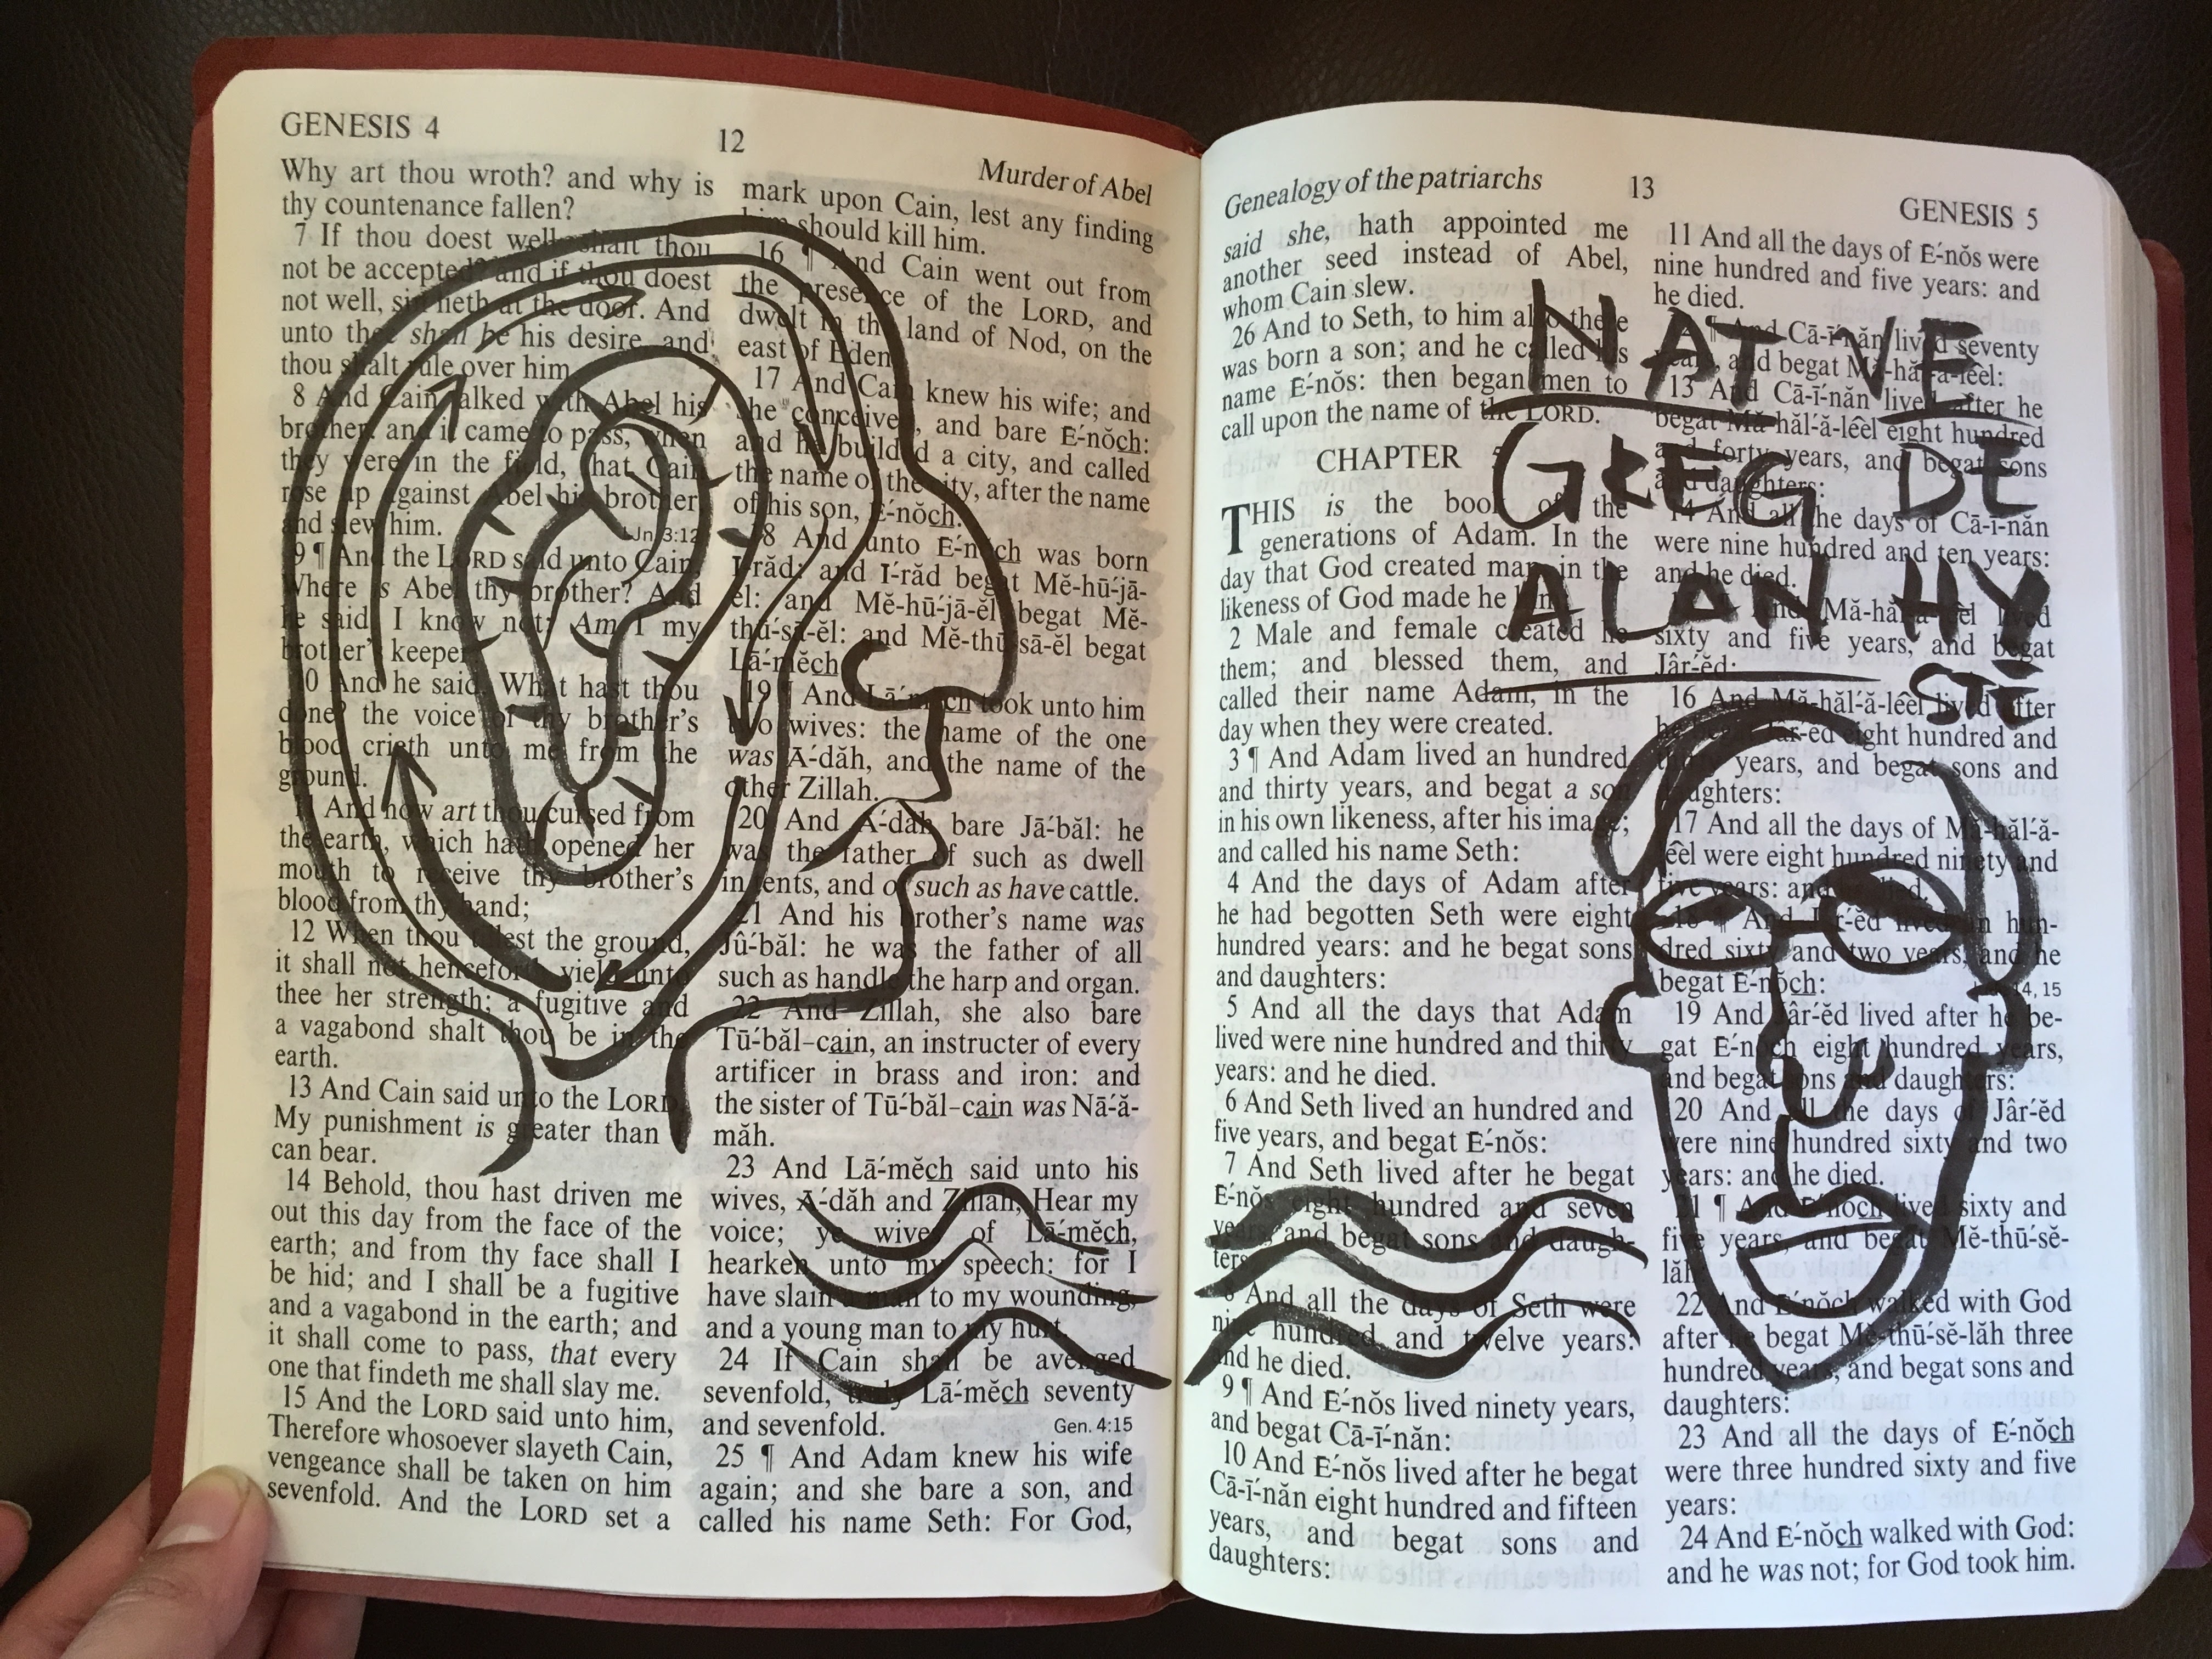 GENESIS 4
12
Murder of Abel
Why art thou wroth? and why is
thy countenance fallen?
7 If thou doest well, shalt thou
not be accepted? and if thou doest
not well, sin lieth at the door. And
unto thee shall be his desire, and
thou shalt rule over him.
8 And Cain talked with Abel his
brother: and it came to pass, when
they were in the field, that Cain
rose up against Abel his brother,
and slew him.
1 Jn. 3:12
9 ¶ And the LORD said unto Cain,
Where is Abel thy brother? And
he said, I know not: Am I my
brother's keeper
10 And he said, What hast thou
done? the voice of thy brother's
blood crieth unto me from the
ground.
11 And now art thou cursed from
the earth, which hath opened her
mouth to receive thy brother's
blood from thy hand;
12 When thou tillest the ground,
it shall not henceforth yield unto
thee her strength; a fugitive and
a vagabond shalt thou be in the
earth.
13 And Cain said unto the LORD,
My punishment is greater than I
can bear.
14 Behold, thou hast driven me
out this day from the face of the
earth; and from thy face shall I
be hid; and I shall be a fugitive
and a vagabond in the earth; and
it shall come to pass, that every
one that findeth me shall slay me.
15 And the LORD said unto him,
Therefore whosoever slayeth Cain,
vengeance shall be taken on him
sevenfold. And the LORD set a
mark upon Cain, lest any finding
him should kill him.
16 ¶ And Cain went out from
the presence of the LORD, and
dwelt in the land of Nod, on the
east of Eden.
17 And Cain knew his wife; and
she conceived, and bare Ē´-nŏch:
and he builded a city, and called
the name of the city, after the name
of his son, Ē´-nŏch.
18 And unto Ē´-nŏch was born
Ī´-răd: and Ī´-răd begat Mĕ-hū´-jā-
ĕl: and Mĕ-hū´-jā-ĕl begat Mĕ-
thū´-sā-ĕl: and Mĕ-thū´-sā-ĕl begat
Lā´-mĕch
19 ¶ And Lā´-mĕch took unto him
two wives: the name of the one
was Ā´-dăh, and the name of the
other Zillah.
20 And Ā´-dăh bare Jā´-băl: he
was the father of such as dwell
in tents, and of such as have cattle.
21 And his brother's name was
Jû´-băl: he was the father of all
such as handle the harp and organ.
22 And Zillah, she also bare
Tū´-băl–cain, an instructer of every
artificer in brass and iron: and
the sister of Tū´-băl–cain was Nā´-ă-
măh.
23 And Lā´-mĕch said unto his
wives, Ā´-dăh and Zillah, Hear my
voice; ye wives of Lā´-mĕch,
hearken unto my speech: for I
have slain a man to my wounding,
and a young man to my hurt.
24 If Cain shall be avenged
sevenfold, truly Lā´-mĕch seventy
and sevenfold.
Gen. 4:15
25 ¶ And Adam knew his wife
again; and she bare a son, and
called his name Seth: For God,
Genealogy of the patriarchs
13
GENESIS 5
said she, hath appointed me
another seed instead of Abel,
whom Cain slew.
26 And to Seth, to him also there
was born a son; and he called his
name Ē´-nŏs: then began men to
call upon the name of the LORD.
CHAPTER 5
THIS is the book of the
generations of Adam. In the
day that God created man, in the
likeness of God made he him;
2 Male and female created he
them; and blessed them, and
called their name Adam, in the
day when they were created.
3 ¶ And Adam lived an hundred
and thirty years, and begat a son
in his own likeness, after his image;
and called his name Seth:
4 And the days of Adam after
he had begotten Seth were eight
hundred years: and he begat sons
and daughters:
5 And all the days that Adam
lived were nine hundred and thirty
years: and he died.
6 And Seth lived an hundred and
five years, and begat Ē´-nŏs:
7 And Seth lived after he begat
Ē´-nŏs eight hundred and seven
years, and begat sons and daugh-
ters:
8 And all the days of Seth were
nine hundred and twelve years:
and he died.
9 ¶ And Ē´-nŏs lived ninety years,
and begat Cā-ī´-năn:
10 And Ē´-nŏs lived after he begat
Cā-ī´-năn eight hundred and fifteen
years, and begat sons and
daughters:
11 And all the days of Ē´-nŏs were
nine hundred and five years: and
he died.
12 ¶ And Cā-ī´-năn lived seventy
years, and begat Mă-hăl´-ă-lêel:
13 And Cā-ī´-năn lived after he
begat Mă-hăl´-ă-lêel eight hundred
and forty years, and begat sons
and daughters:
14 And all the days of Cā-ī´-năn
were nine hundred and ten years:
and he died.
And Mă-hăl´-ă-lêel lived
sixty and five years, and begat
Jâr´-ĕd:
16 And Mă-hăl´-ă-lêel lived after
he begat Jâr´-ĕd eight hundred and
thirty years, and begat sons and
daughters:
17 And all the days of Mă-hăl´-ă-
lêel were eight hundred ninety and
five years: and he died.
18 ¶ And Jâr´-ĕd lived an hun-
dred sixty and two years, and he
begat Ē´-nŏch:
14, 15
19 And Jâr´-ĕd lived after he be-
gat Ē´-nŏch eight hundred years,
and begat sons and daughters:
20 And all the days of Jâr´-ĕd
were nine hundred sixty and two
years: and he died.
21 ¶ And Ē´-nŏch lived sixty and
five years, and begat Mĕ-thū´-sĕ-
lăh
22 And Ē´-nŏch walked with God
after he begat Mĕ-thū´-sĕ-lăh three
hundred years, and begat sons and
daughters:
23 And all the days of Ē´-nŏch
were three hundred sixty and five
years:
24 And Ē´-nŏch walked with God:
and he was not; for God took him.
NATVE
GREG DE
ALAN HY
STE